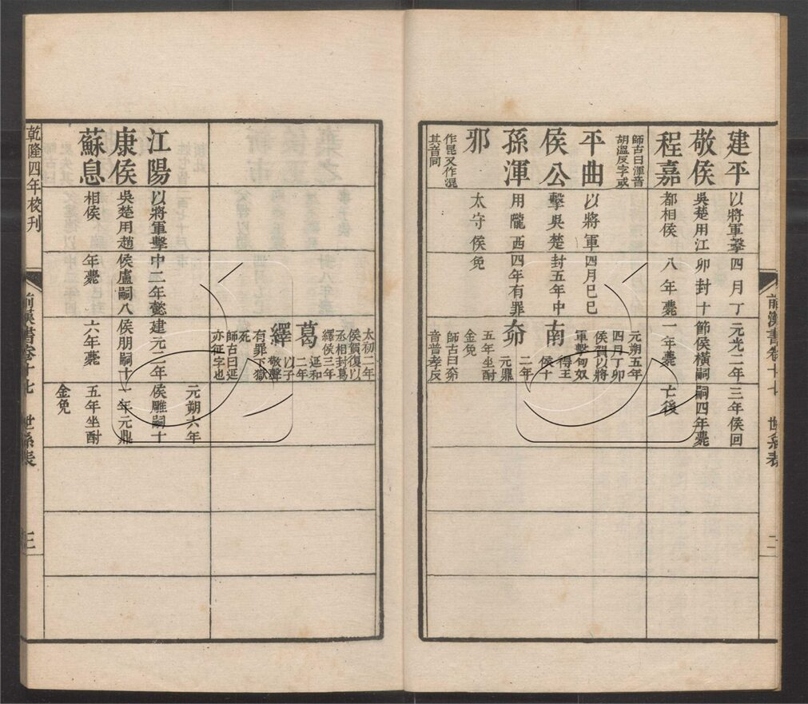 建平
敬侯
程嘉
以將軍擊
吳楚用江
都相侯
四月丁
卯封十
八年薨
元光二年
節侯橫嗣
一年薨
三年侯回
嗣四年薨
亡後
師古曰渾音
胡溫反字或
作昆又作混
其音同
平曲
侯公
孫渾
邪
以將軍
擊吳楚
用隴西
太守侯
四月己巳
封五年中
四年有罪
免
南
奅
元朔五年
四月丁卯
侯賀以將
軍擊匈奴
得王
侯十
二年
元鼎
五年坐酎
金免
師古曰奅
音普孝反
葛
繹
太初二年
侯賀復以
丞相封葛
繹侯三年
延和
二年
以子
敬聲
有罪下獄
死
師古曰延
亦征字也
江陽
康侯
蘇息
以將軍擊
吳楚用趙
相侯
中二年懿
侯盧嗣八
年薨
建元二年
侯朋嗣十
六年薨
元朔六年
侯雕嗣十
一年元鼎
五年坐酎
金免
乾隆四年校刊
前漢書卷十七
世系表
二
前漢書卷十七
世系表
三